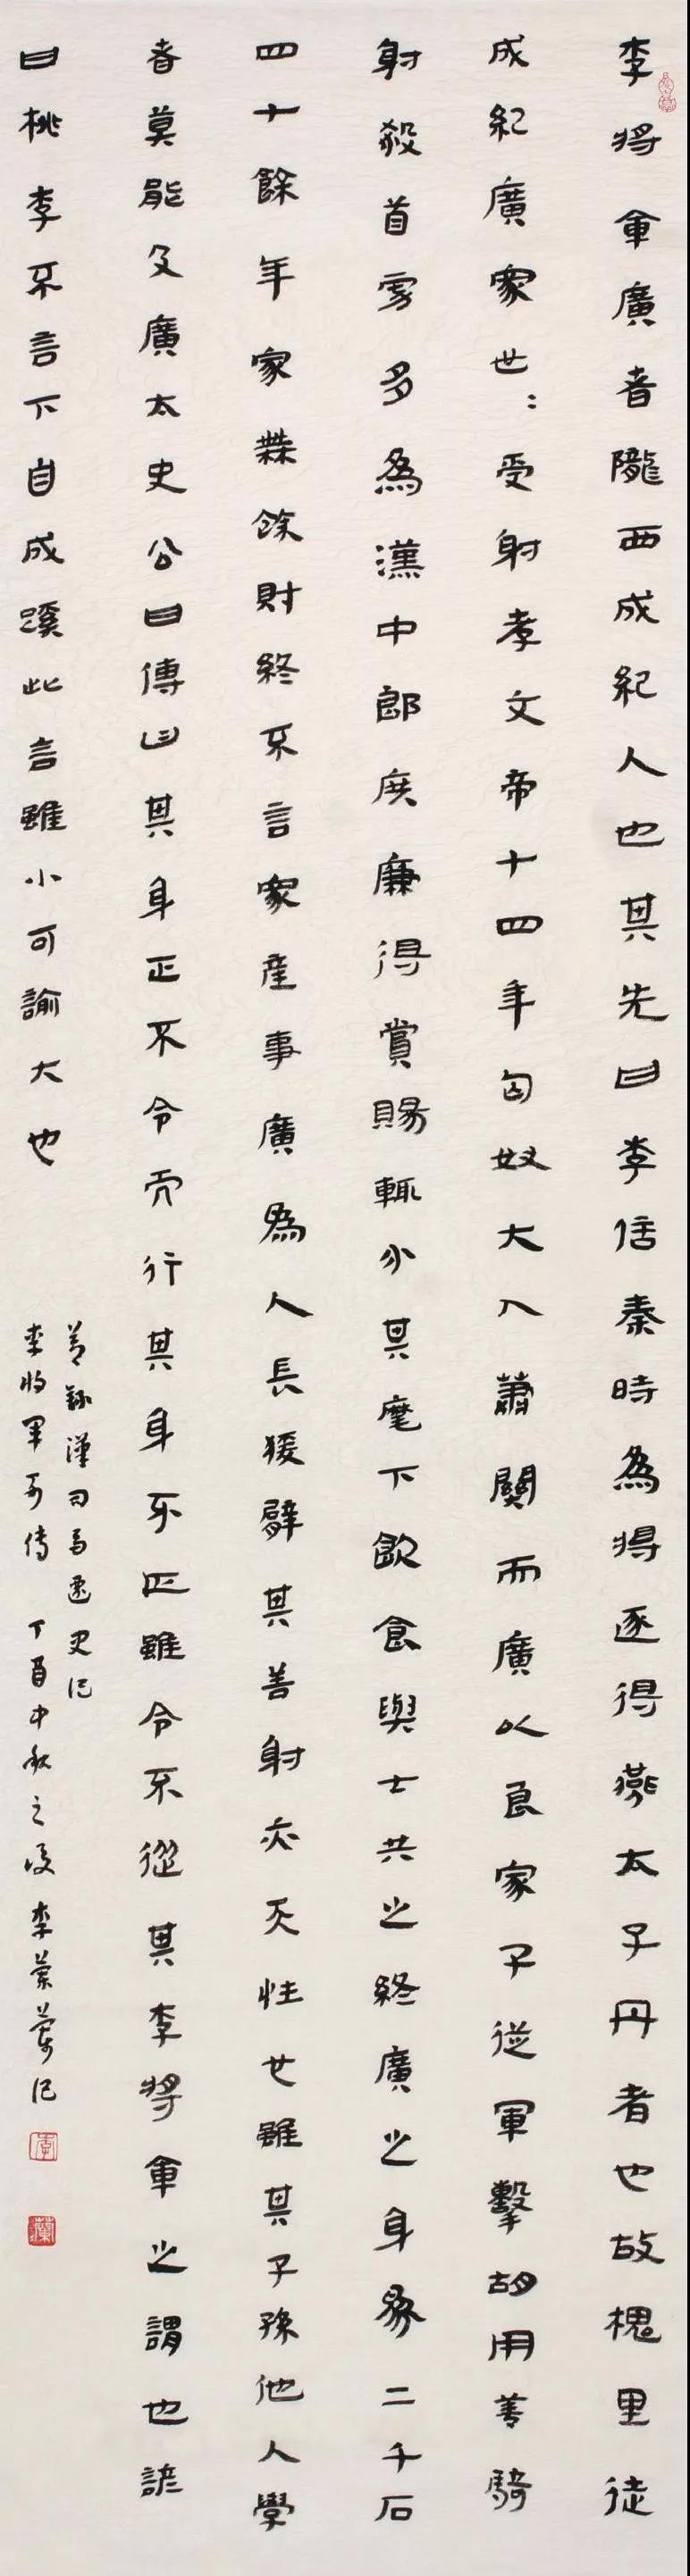 李将軍廣者隴西成紀人也其先曰李信秦時為将逐得燕太子丹者也故槐里徙
成紀廣家世〻受射孝文帝十四年匈奴大入蕭關而廣以良家子從軍擊胡用善騎
射殺首虜多為漢中郎廣廉得賞賜輒分其麾下飲食與士共之終廣之身為二千石
四十餘年家無餘財終不言家產事廣為人長猨臂其善射亦天性也雖其子孫他人學
者莫能及廣太史公曰傳曰其身正不令而行其身不正雖令不從其李将軍之謂也諺
曰桃李不言下自成蹊此言雖小可諭大也
節錄漢司馬遷史记
李将軍列传 丁酉中秋之後 李蘭记
李
蘭